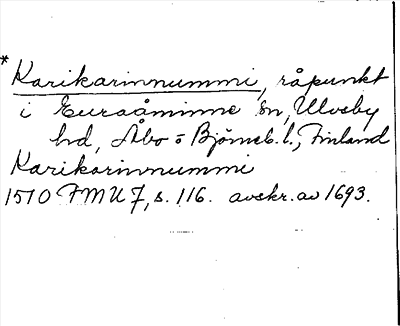 * Karikarinnummi, råpunkt
i Euraåminne sn, Ulvsby
hd, Åbo o Björneb. l., Finland
Karikarinnummi
1510 FMU 7, s. 116. avskr. av 1693.